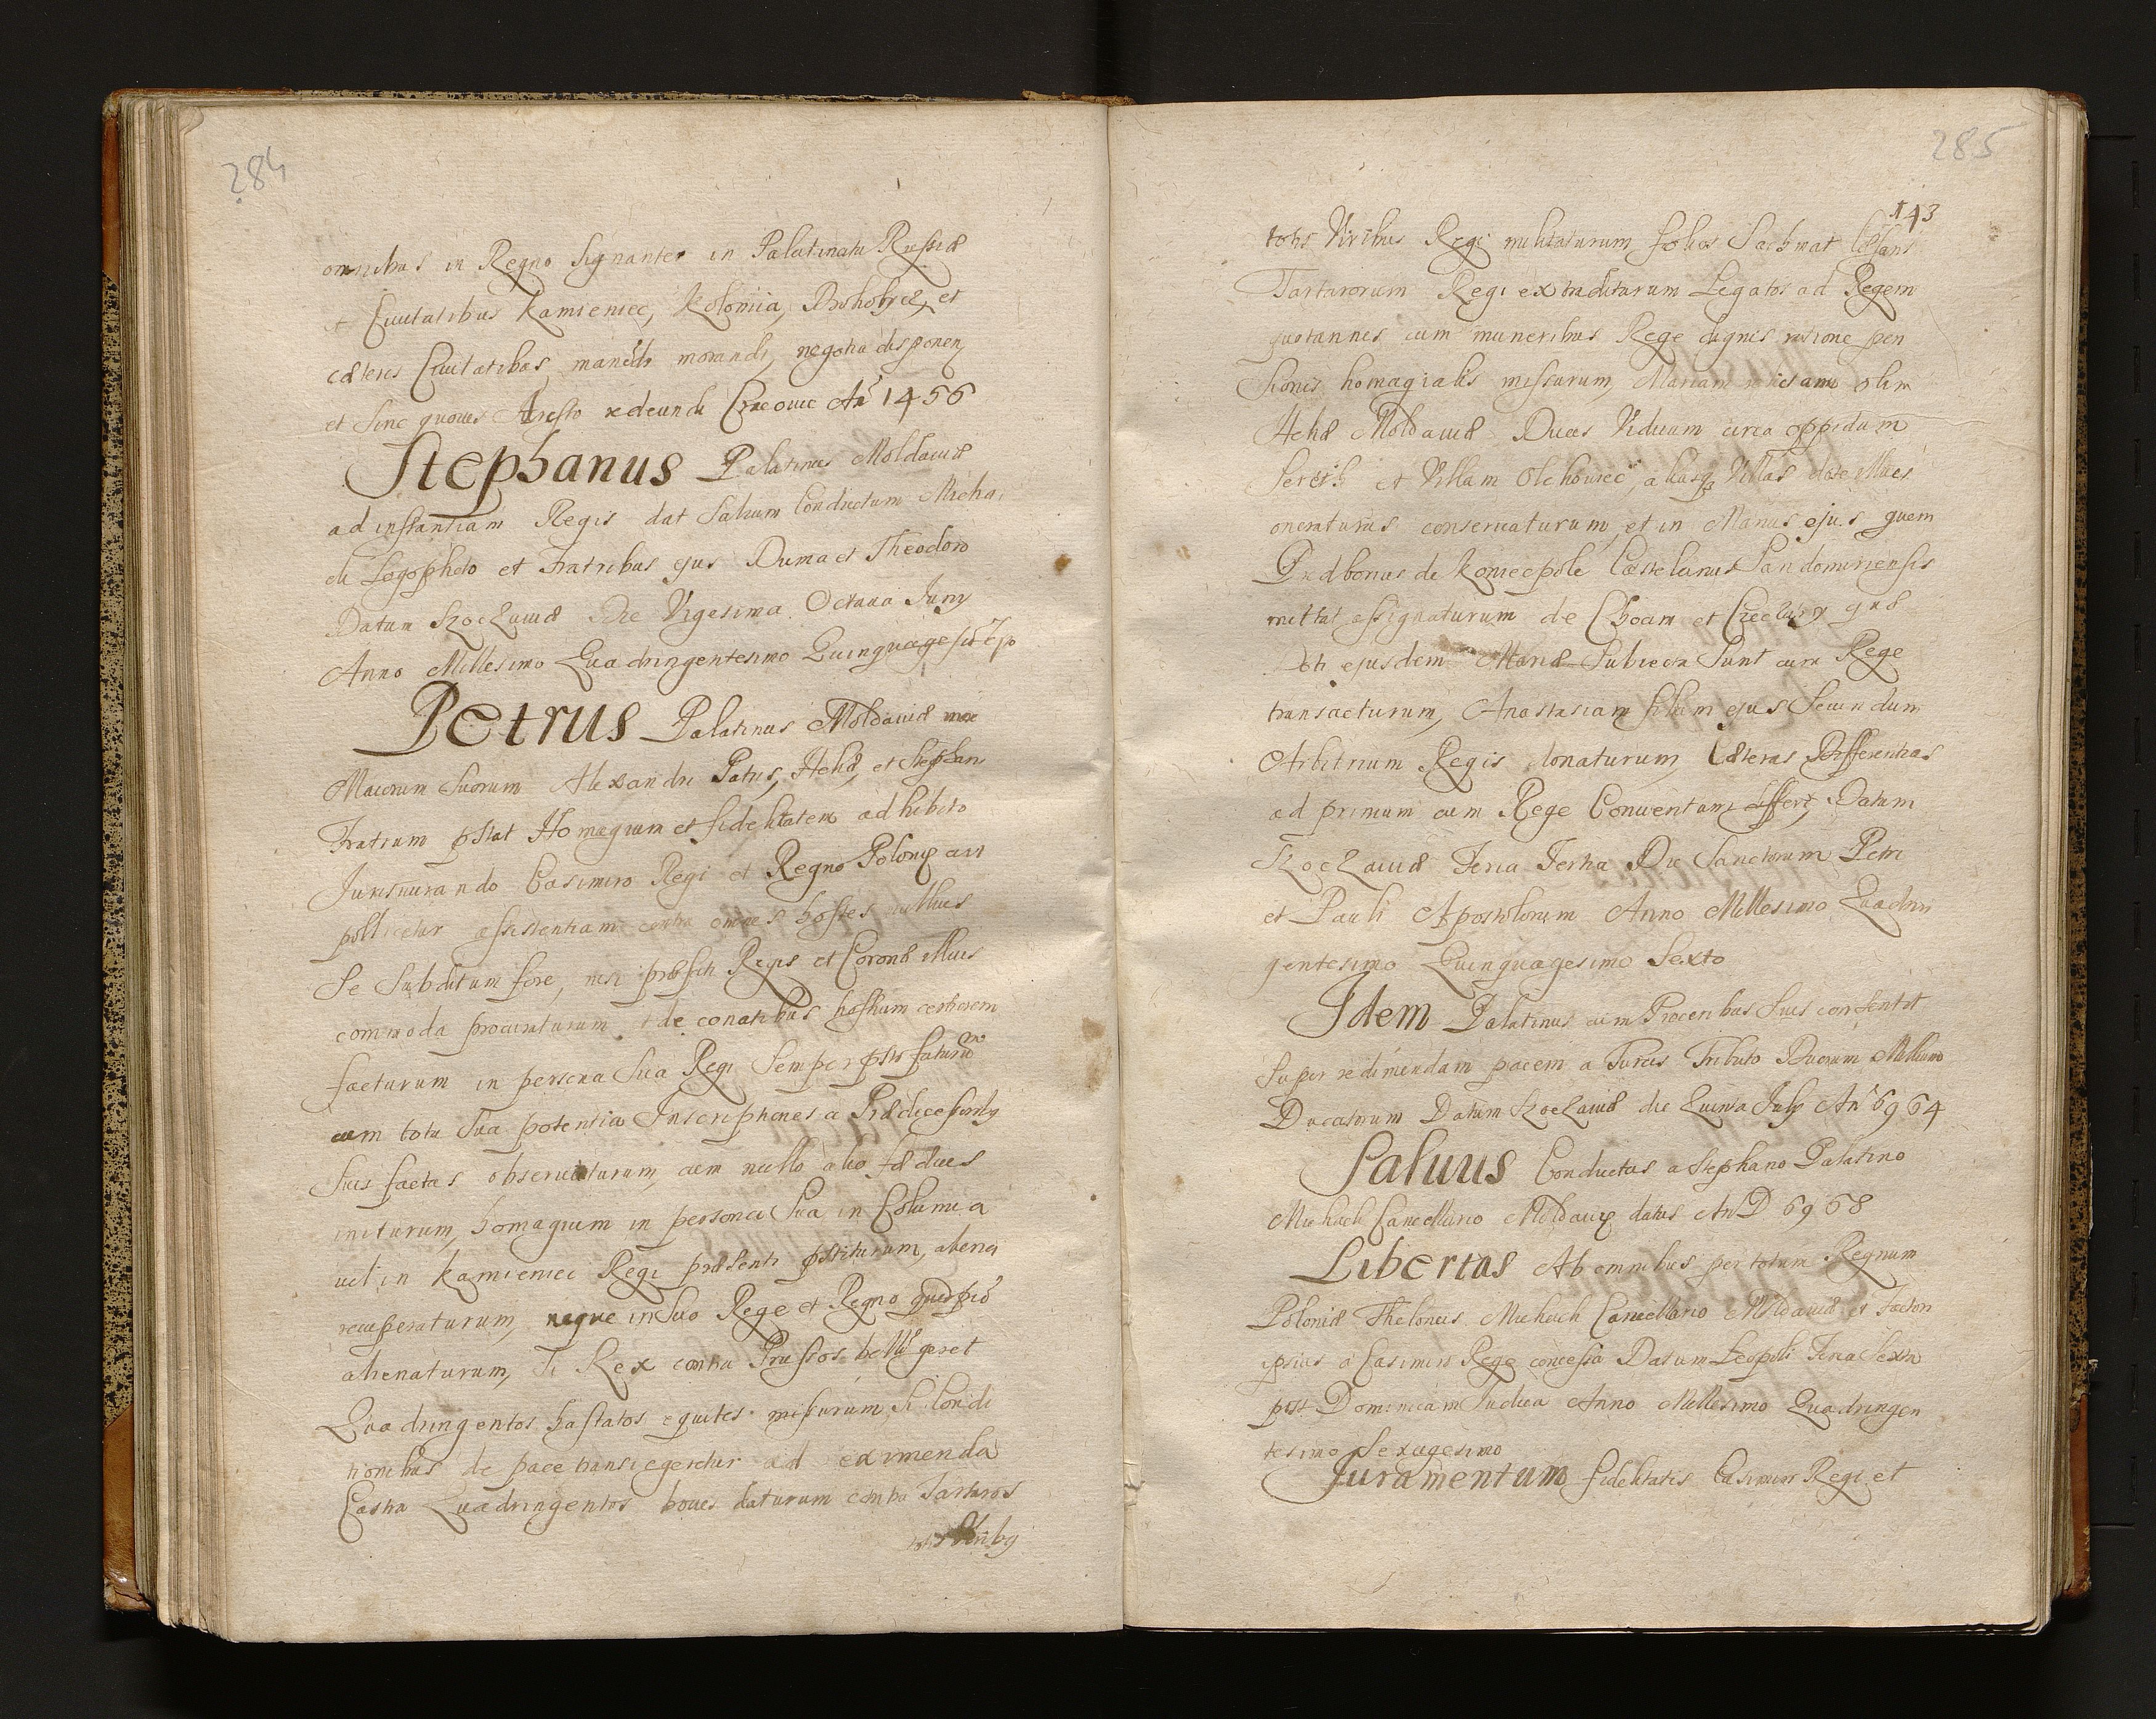 284
omnibus in Regno Signanter in Palatinatu Russiæ
et Civitatibus Kamieniec, Kolomia, Drohobycz, et
cæteris Civitatibus manendi morandi, negotia disponen,
et Sine quovis Aresto redeundi Cracovie Añ 1456
Stephanus Palatinus Moldaviæ
ad instantiam Regis dat Salvum Conductum Micha,
eli Logopheto et Fratribus ejus Duma et Theodoro
Datum Szoczaviæ Die Vigesima Octava Juny
Anno Millesimo Quadringentesimo Quinquagesimo
Petrus Palatinus Moldaviæ more
Maiorum Suorum Alexandri Patris, Heliæ, et Stephani
Fratrum pstat Homagium et fidelitatem adhibito
Jurisiurando Casimiro Regi et Regno Poloniæ ass
pollicetur assistentiam contra omnes hostes nullius
Se Subditum fore, nisi præfati Regis et Coronæ illius
commoda procuraturum et de conatibus hostium certiorem
facturum in persona Sua Regi Semper
cum tota Sua potentia Inscriptiones a Prædecessoribg
Suis factas observaturum, cum nullo alio fædus
initurum, homagium in persona Sua in Columia
vel in Kamieniec Regi præsenti pstiturum, aliena
recuperaturum, neque in Suo Rege et Regno quidpiã
alienaturum, Si Rex contra Prussos bellũ geret
Quadringentos hastatos equites missurum, Si Condi
tionibus de pace transigeretur ad eximenda
Castra Quadringentos boves daturum contra Tartaros
totis Viribg
285
143
totis Viribus Regi militaturum, Sachmat Cæsaris
Tartarorum Regi extraditurum Legatos ad Regem
quotannis cum muneribus Rege dignis ratione pen
Sionis homagialis missurum, Mariam relictam olim
Heliæ Moldaviæ Ducis Viduam circa oppidum
Sereth et Villam Olchowiec, aliasq Villas dote illius
oneraturus conservaturum, et in Manus ejus quem
Prædbonus de Koniecpole Castelanus Sandomiriensis
mittat assignaturum de Choam et quæ
Doti ejusdem Mariæ Subiecta Sunt cum Rege
transacturum, Anastasiam filiam ejus Secundum
Arbitrium Regis donaturum, Cæteras Differentias
ad primum cum Rege Conventum differt, Datum
Szoczaviæ Feria Tertia Die Sanctorum Petri
et Pauli Apostolorum Anno Millesimo Quadrin
gentesimo Quinquagesimo Sexto
Idem Palatinus cum Proceribus Suis consentit
Super redimendam pacem a Turcis Tributo Duorum Millium
Ducatorum Datum Szoczaviæ die Quinta July Añ 6964
Salvus Conductus a Stephano Palatino
Michaeli Cancellario Moldaviæ datus An D 6968
Libertas Ab omnibus per totum Regnum
Poloniæ Theloneis Michaeli Cancellario Moldaviæ et factori
ipsius a Casimiro Rege concessa Datum Leopoli Feria Sexta
post Dominicam Iudica Anno Millesimo Quadringen
tesimo Sexagesimo
Juramentum fidelitatis Casimiro Regi et